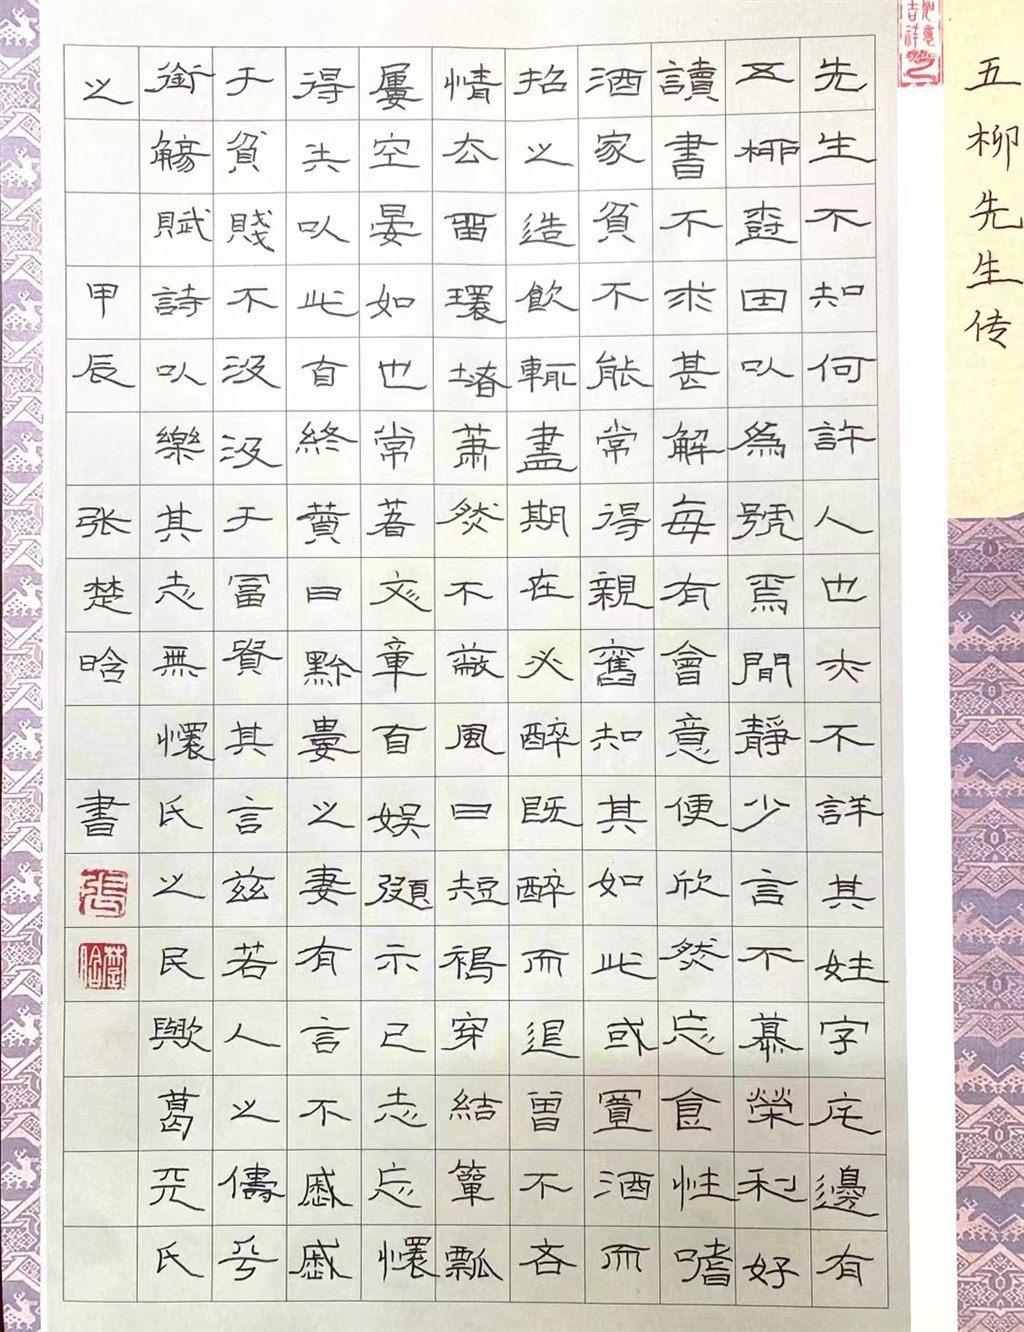 五柳先生传
先生不知何許人也亦不詳其姓字宅邊有
五柳樹因以為號焉閒靜少言不慕榮利好
讀書不求甚解每有會意便欣然忘食性嗜
酒家貧不能常得親舊知其如此或置酒而
招之造飲輒盡期在必醉既醉而退曾不吝
情去留環堵蕭然不蔽風日短褐穿結簞瓢
屢空晏如也常著文章自娛頗示己志忘懷
得失以此自終贊曰黔婁之妻有言不戚戚
于貧賤不汲汲于富貴其言茲若人之儔乎
銜觴賦詩以樂其志無懷氏之民歟葛天氏
之 甲辰 张楚晗 書
張
楚晗